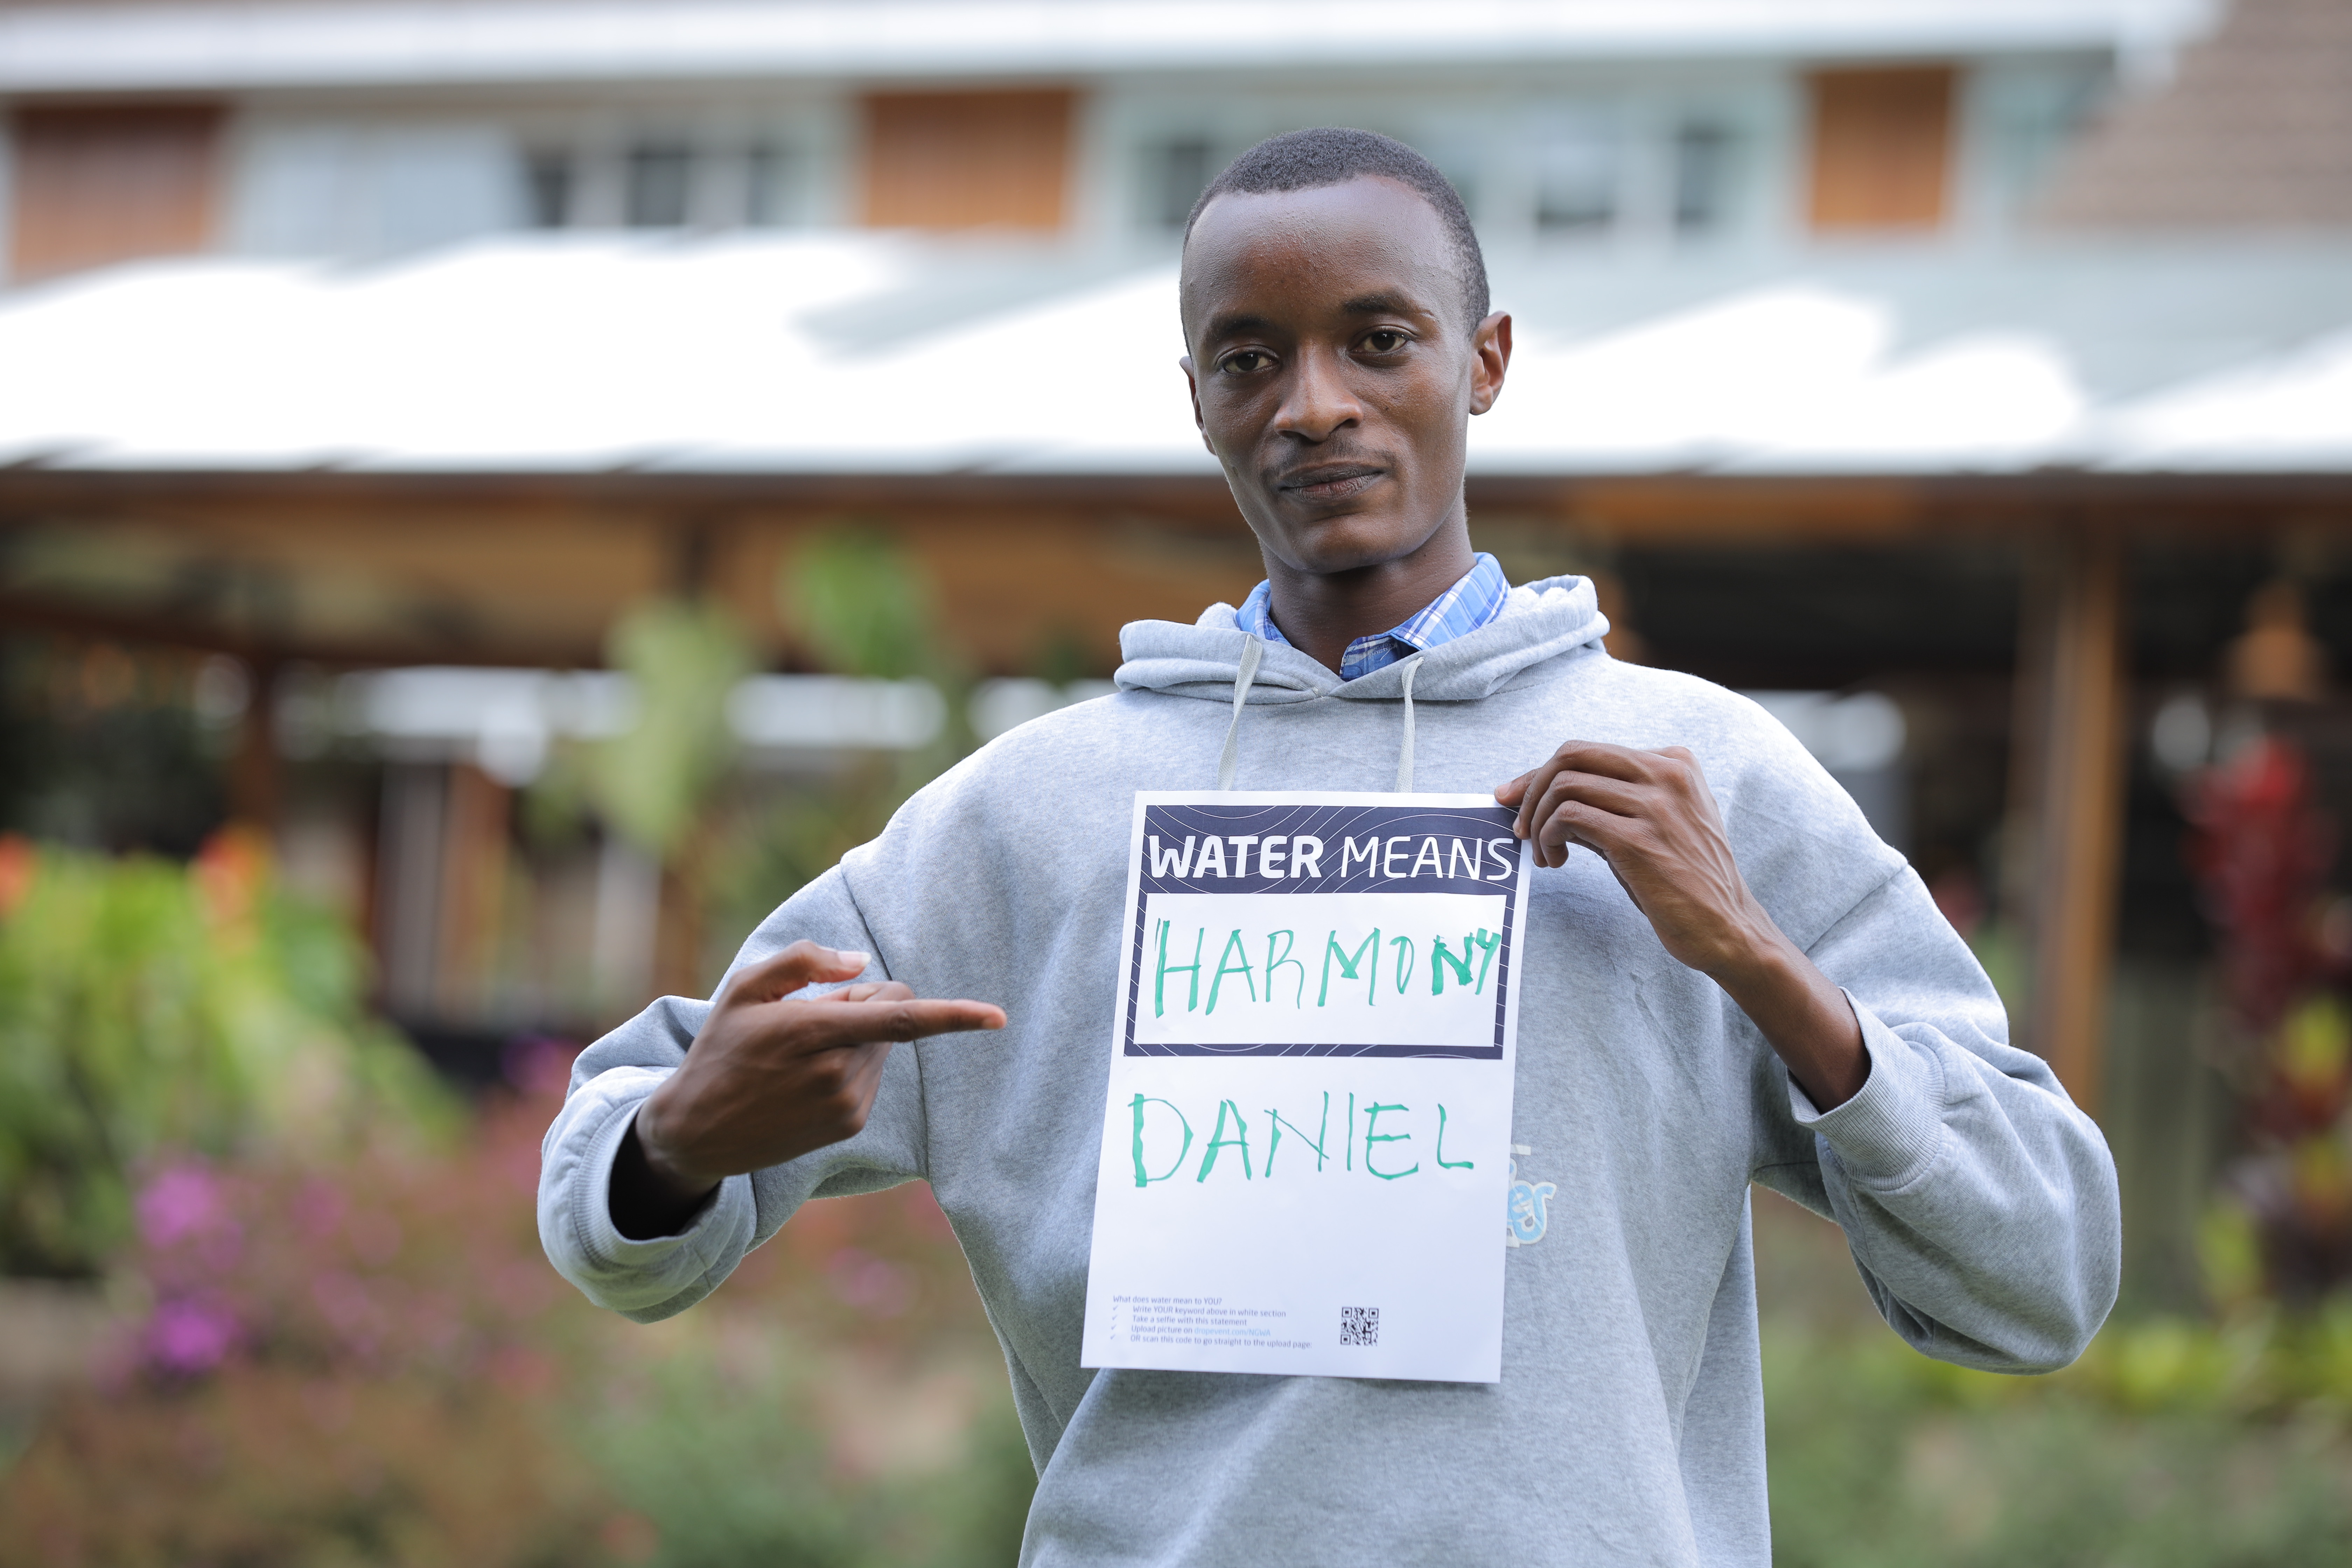 WATER MEANS
HARMONY
DANIEL
What does water mean to YOU?
✓ Write YOUR keyword above in white section
✓ Take a selfie with this statement
✓ Upload picture on
✓ OR scan this code to go straight to the upload page: